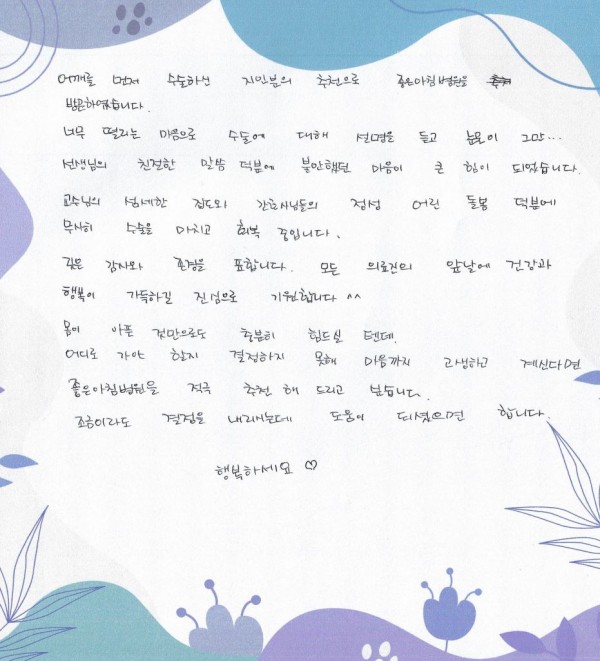 어깨를 먼저 수술하신 지인분의 추천으로 좋은아침병원을
방문하였습니다.
너무 떨리는 마음으로 수술에 대해 설명을 듣고 눈물이 그만...
선생님의 친절한 말씀 덕분에 불안했던 마음이 큰 힘이 되었습니다.
교수님의 섬세한 집도와 간호사님들의 정성 어린 돌봄 덕분에
무사히 수술을 마치고 회복 중입니다.
깊은 감사와 존경을 표합니다. 모든 의료진의 앞날에 건강과
행복이 가득하길 진심으로 기원합니다 ^^
몸이 아픈 것만으로도 충분히 힘드실 텐데.
어디로 가야 할지 결정하지 못해 마음까지 고생하고 계신다면
좋은아침병원을 적극 추천 해 드리고 싶습니다.
조금이라도 결정을 내리시는데 도움이 되셨으면 합니다.
행복하세요 ♡